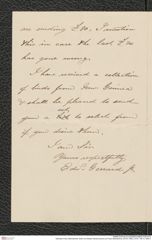 are sending £10. I mention
this in case the last £10
has gone wrong.
I have received a collection
of birds from New Guinea
& shall be pleased to send
you a to select from
if you desire them.
I am Sir
Yours respectfully
Edw. Gerrard Jr.